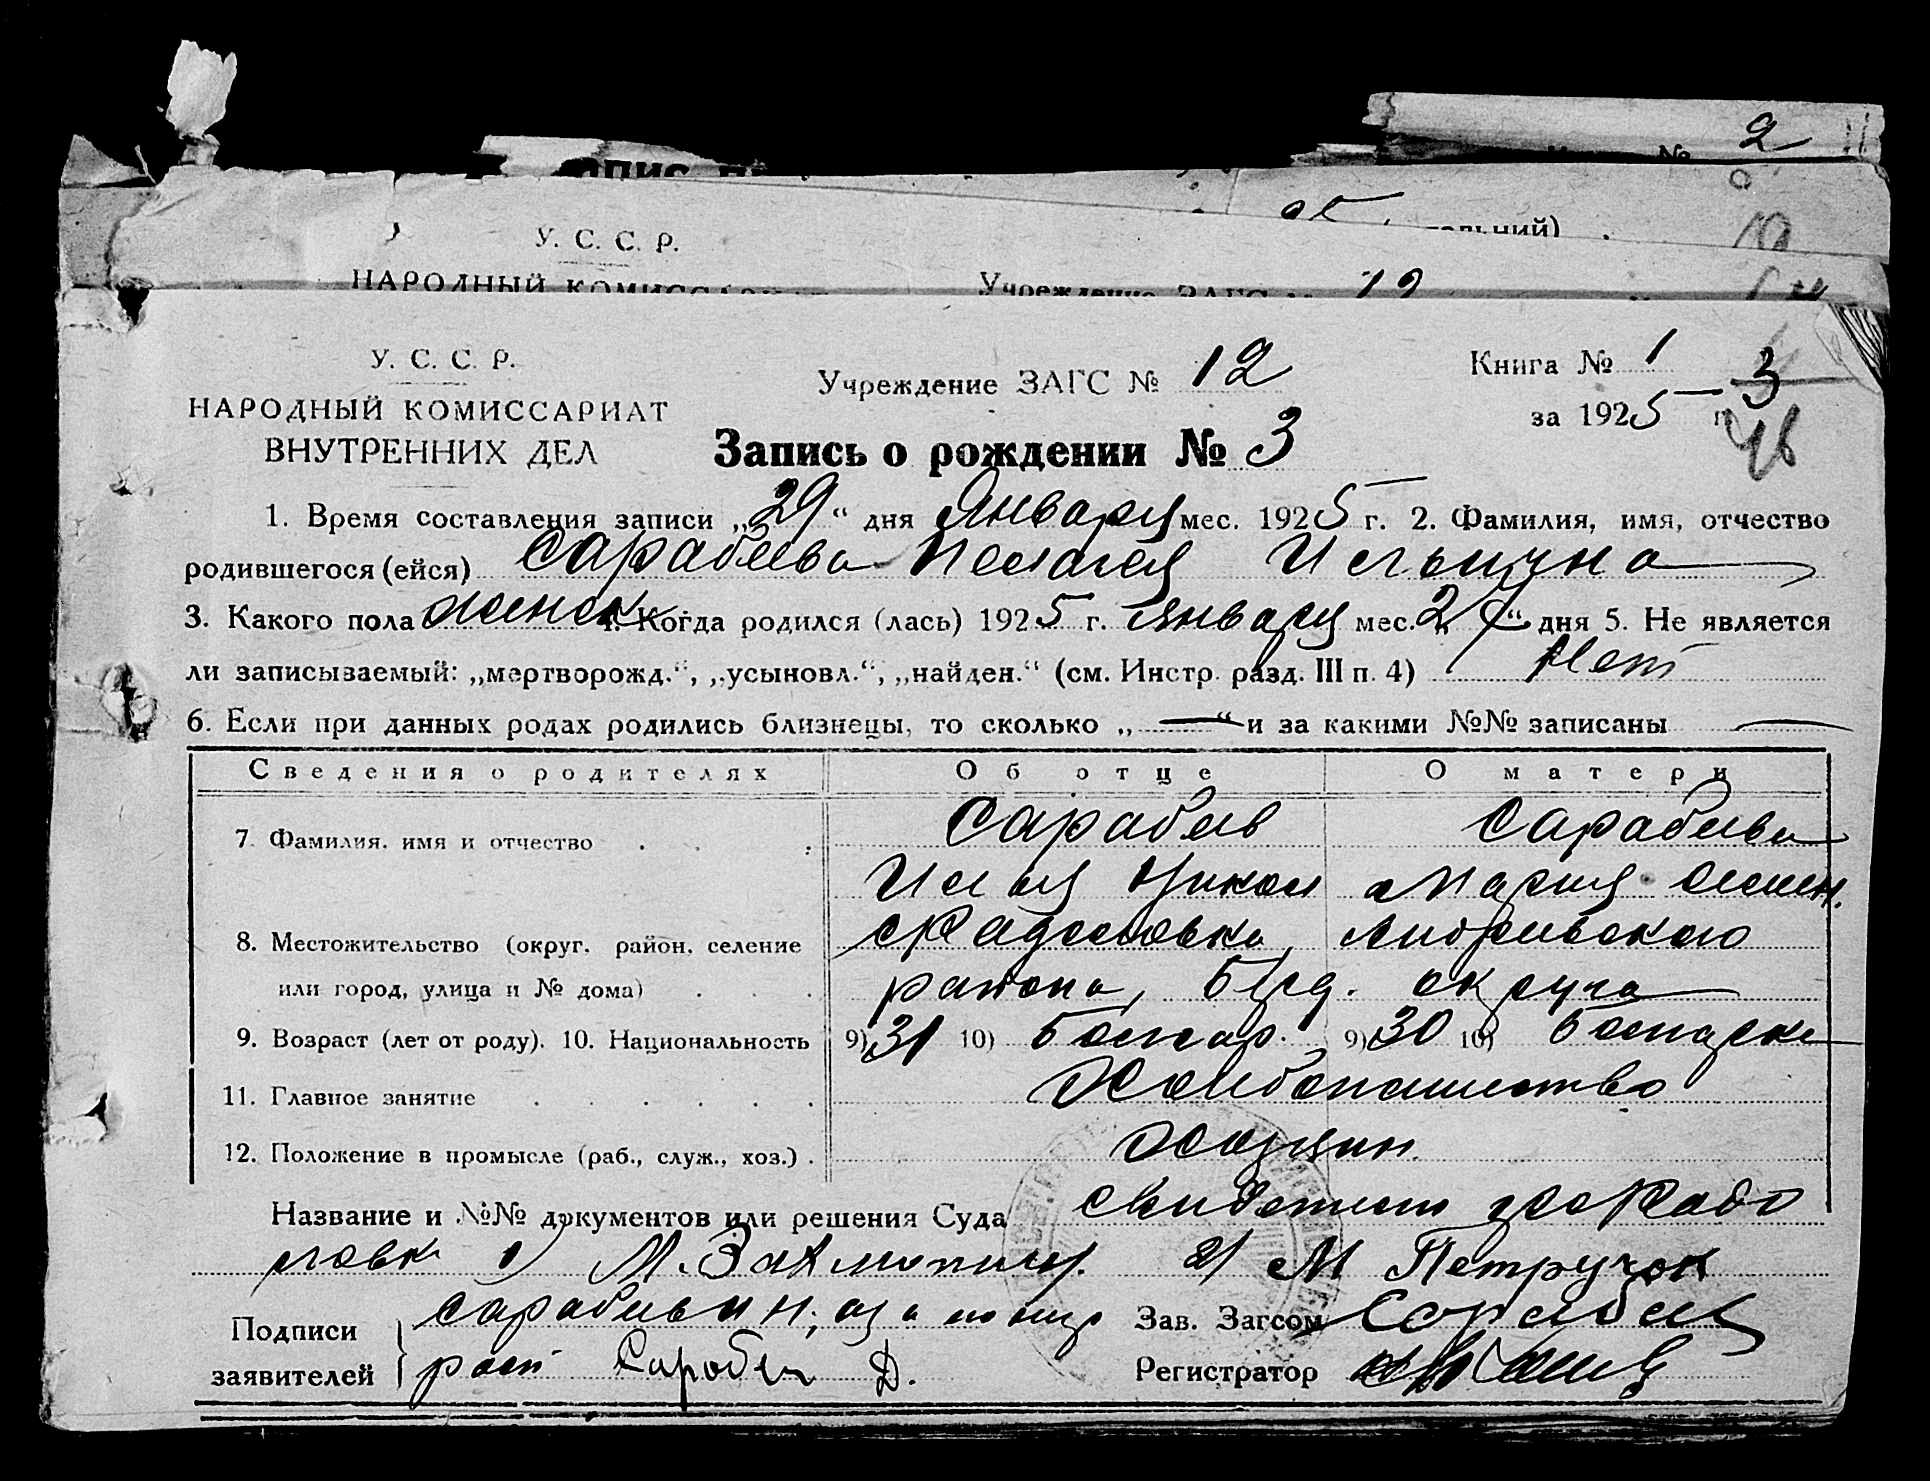 2
У. С. С. Р.
12
У. С. С. Р.
НАРОДНЫЙ КОМИССАРИАТ
ВНУТРЕННИХ ДЕЛ
Учреждение ЗАГС № 12
Книга № 1
за 1925 г. 3
Запись о рождении № 3
1. Время составления записи „29“ дня Января мес. 1925 г. 2. Фамилия, имя, отчество
родившегося (ейся) Сарабеева Пелагея Ильинична
3. Какого пола женск 4. Когда родился (лась) 1925 г. января мес. „27“ дня 5. Не является
ли записываемый: „мертворожд.“, „усыновл.“, „найден.“ (см. Инстр. разд. III п. 4) Нет
6. Если при данных родах родились близнецы, то сколько „—“ и за какими №№ записаны —
Сведения о родителях Об отце О матери
7. Фамилия, имя и отчество Сарабеев Сарабеева
Илья Никол Мария Семен.
8. Местожительство (округ, район, селение с Радоловка, Андреевского
или город, улица и № дома) района, Берд. округа
9. Возраст (лет от роду). 10. Национальность 9) 31 10) Болгар. 9) 30 10) Болгарка
11. Главное занятие Хлебопашество
12. Положение в промысле (раб., служ., хоз.) Хозяин.
Название и №№ документов или решения Суда
ловк 1) М. 2) М Петручок
Подписи
заявителей
Сарабеев И Н, за
Сарабеи Д.
Зав. Загсом
Регистратор